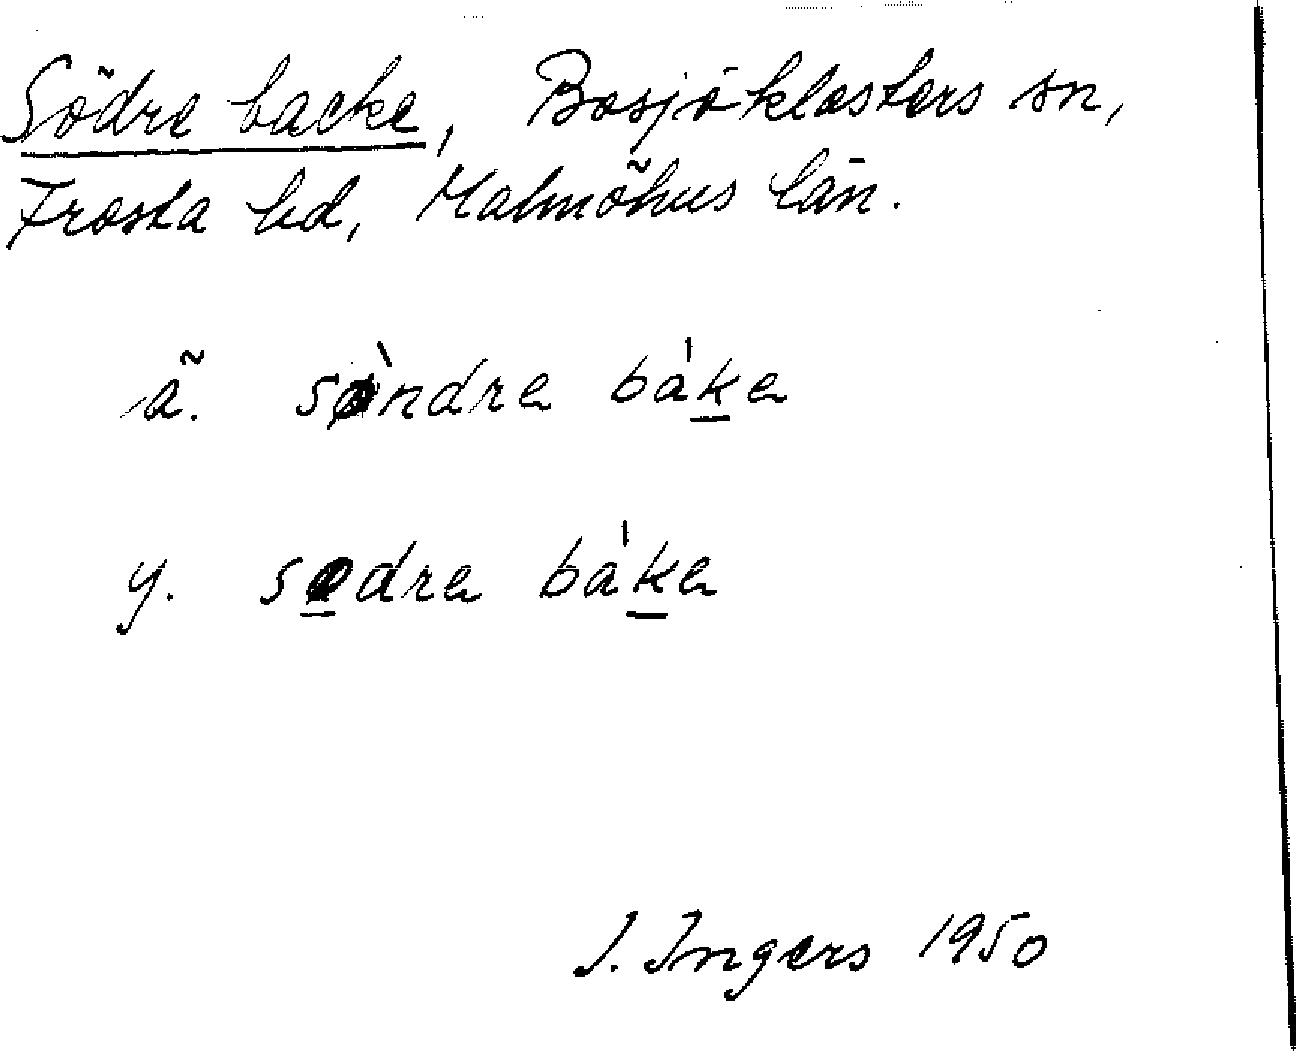 Södre backe, Bosjöklosters sn,
Frosta hd, Malmöhus län.
ä. søndre bake
y. sødre bake
I. Ingers 1950